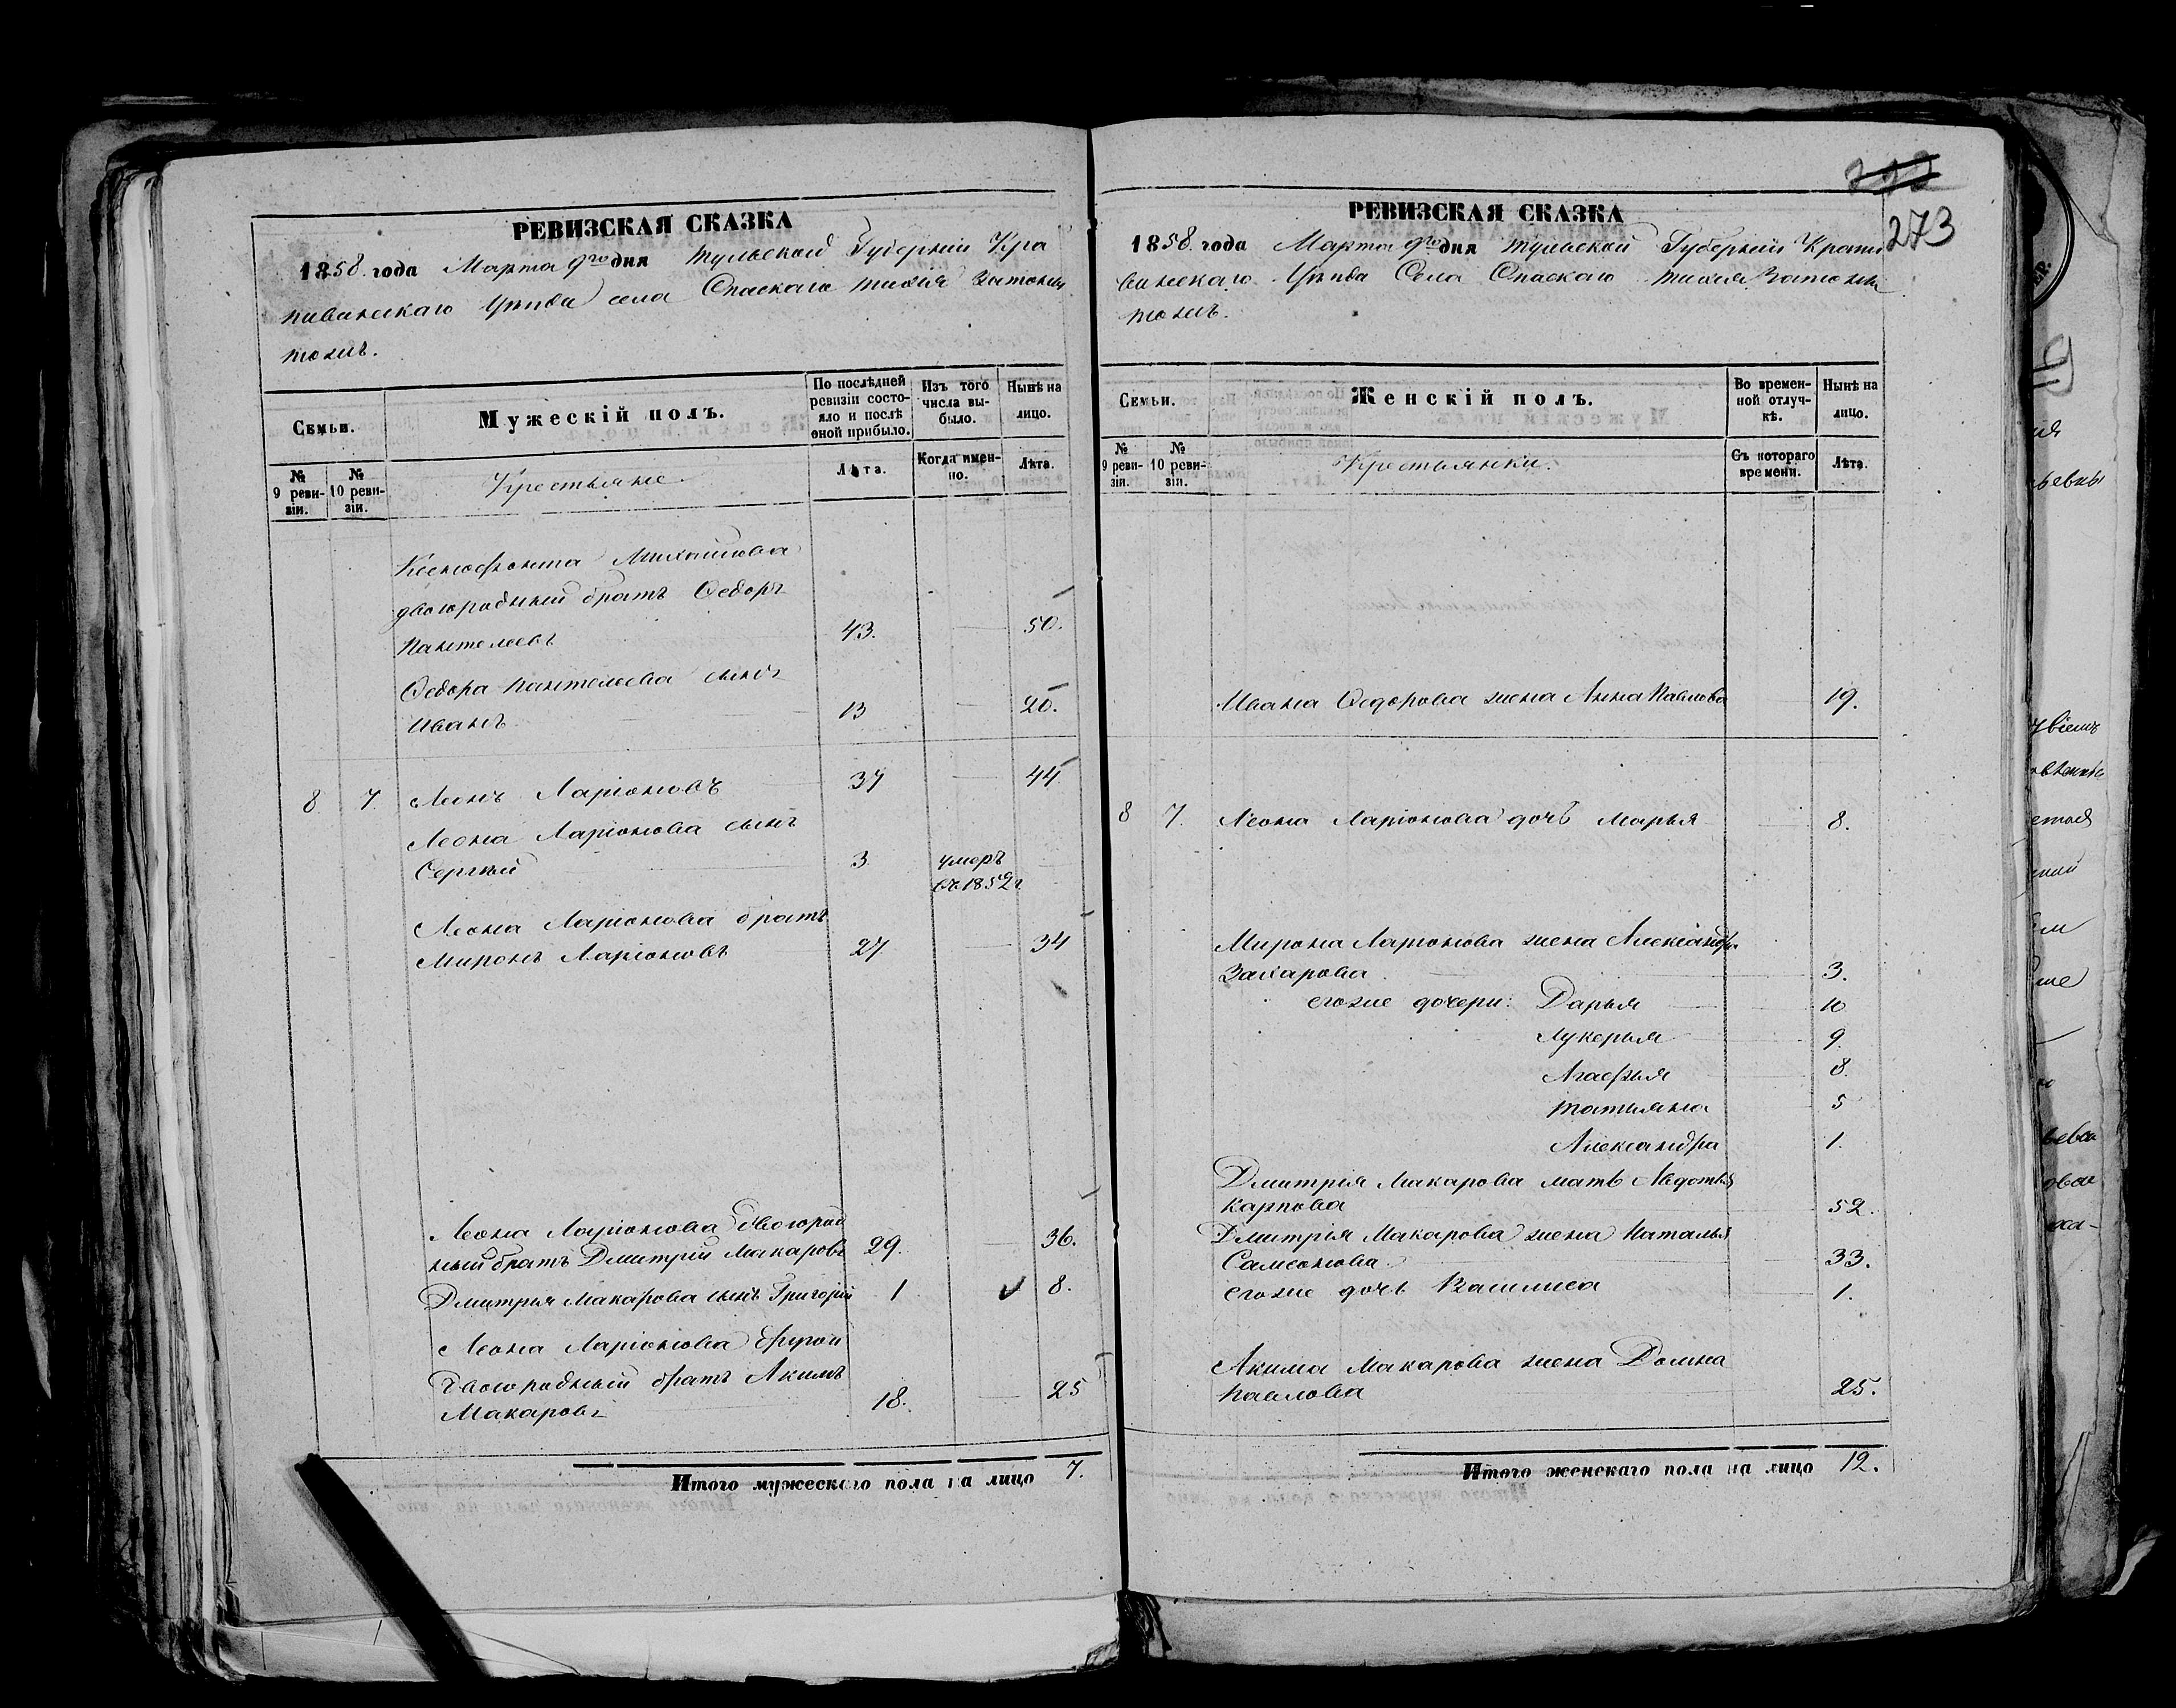 РЕВИЗСКАЯ СКАЗКА
1858 года Марта 9го дня Тульской Губерніи Кра
пивинскаго Уѣзда села Спаскаго тихія Затоны
тожъ.
Семьи.
Мужескій полъ.
По послѣдней ревизіи состояло и послѣ оной прибыло.
Изъ того числа выбыло.
Нынѣ на лицо.
№ 9 ревизіи.
№ 10 ревизіи.
Крестьяне.
Лѣта.
Когда именно.
Лѣта.
Ксенофонта Михайлова
двоюродный братъ Ѳедоръ
Пантелеевъ 43. 50.
Ѳедора Пантелеева сынъ
Иванъ 13 20.
8 7. Леонъ Ларіоновъ 37 44.
Леона Ларіонова сынъ
Сергѣй 3 умеръ
въ 1852 г
Леона Ларіонова братъ
Миронъ Ларіоновъ 27. 34
Леона Ларіонова двоюрод
ный братъ Дмитрій Макаровъ 29. 36.
Дмитрія Макарова сынъ Григорій 1 8.
Леона Ларіонова другой
двоюродный братъ Акимъ
Макаровъ 18. 25
Итого мужескаго пола на лицо 7.
273
РЕВИЗСКАЯ СКАЗКА
1858 года Марта 9го дня Тульской Губерніи Крапи
винскаго Уѣзда Села Спаскаго тихія Затоны
тожъ.
Семьи.
Женскій полъ.
Во временной отлучкѣ.
Нынѣ на лицо.
№ 9 ревизіи.
№ 10 ревизіи.
Крестьянки.
Съ котораго времени.
Лѣта.
Ивана Ѳедорова жена Анна Павлова 19.
8 7. Леона Ларіонова дочь Марья 8.
Мирона Ларіонова жена Александра
Захарова 3.
его же дочери: Дарья 10
Лукерья 9.
Агафья 8.
Татьяна 5
Александра 1.
Дмитрія Макарова мать Авдотья
Карпова 52.
Дмитрія Макарова жена Наталья
Самсонова 33.
его же дочь Василиса 1.
Акима Макарова жена Домна
Павлова 25.
Итого женскаго пола на лицо 12.